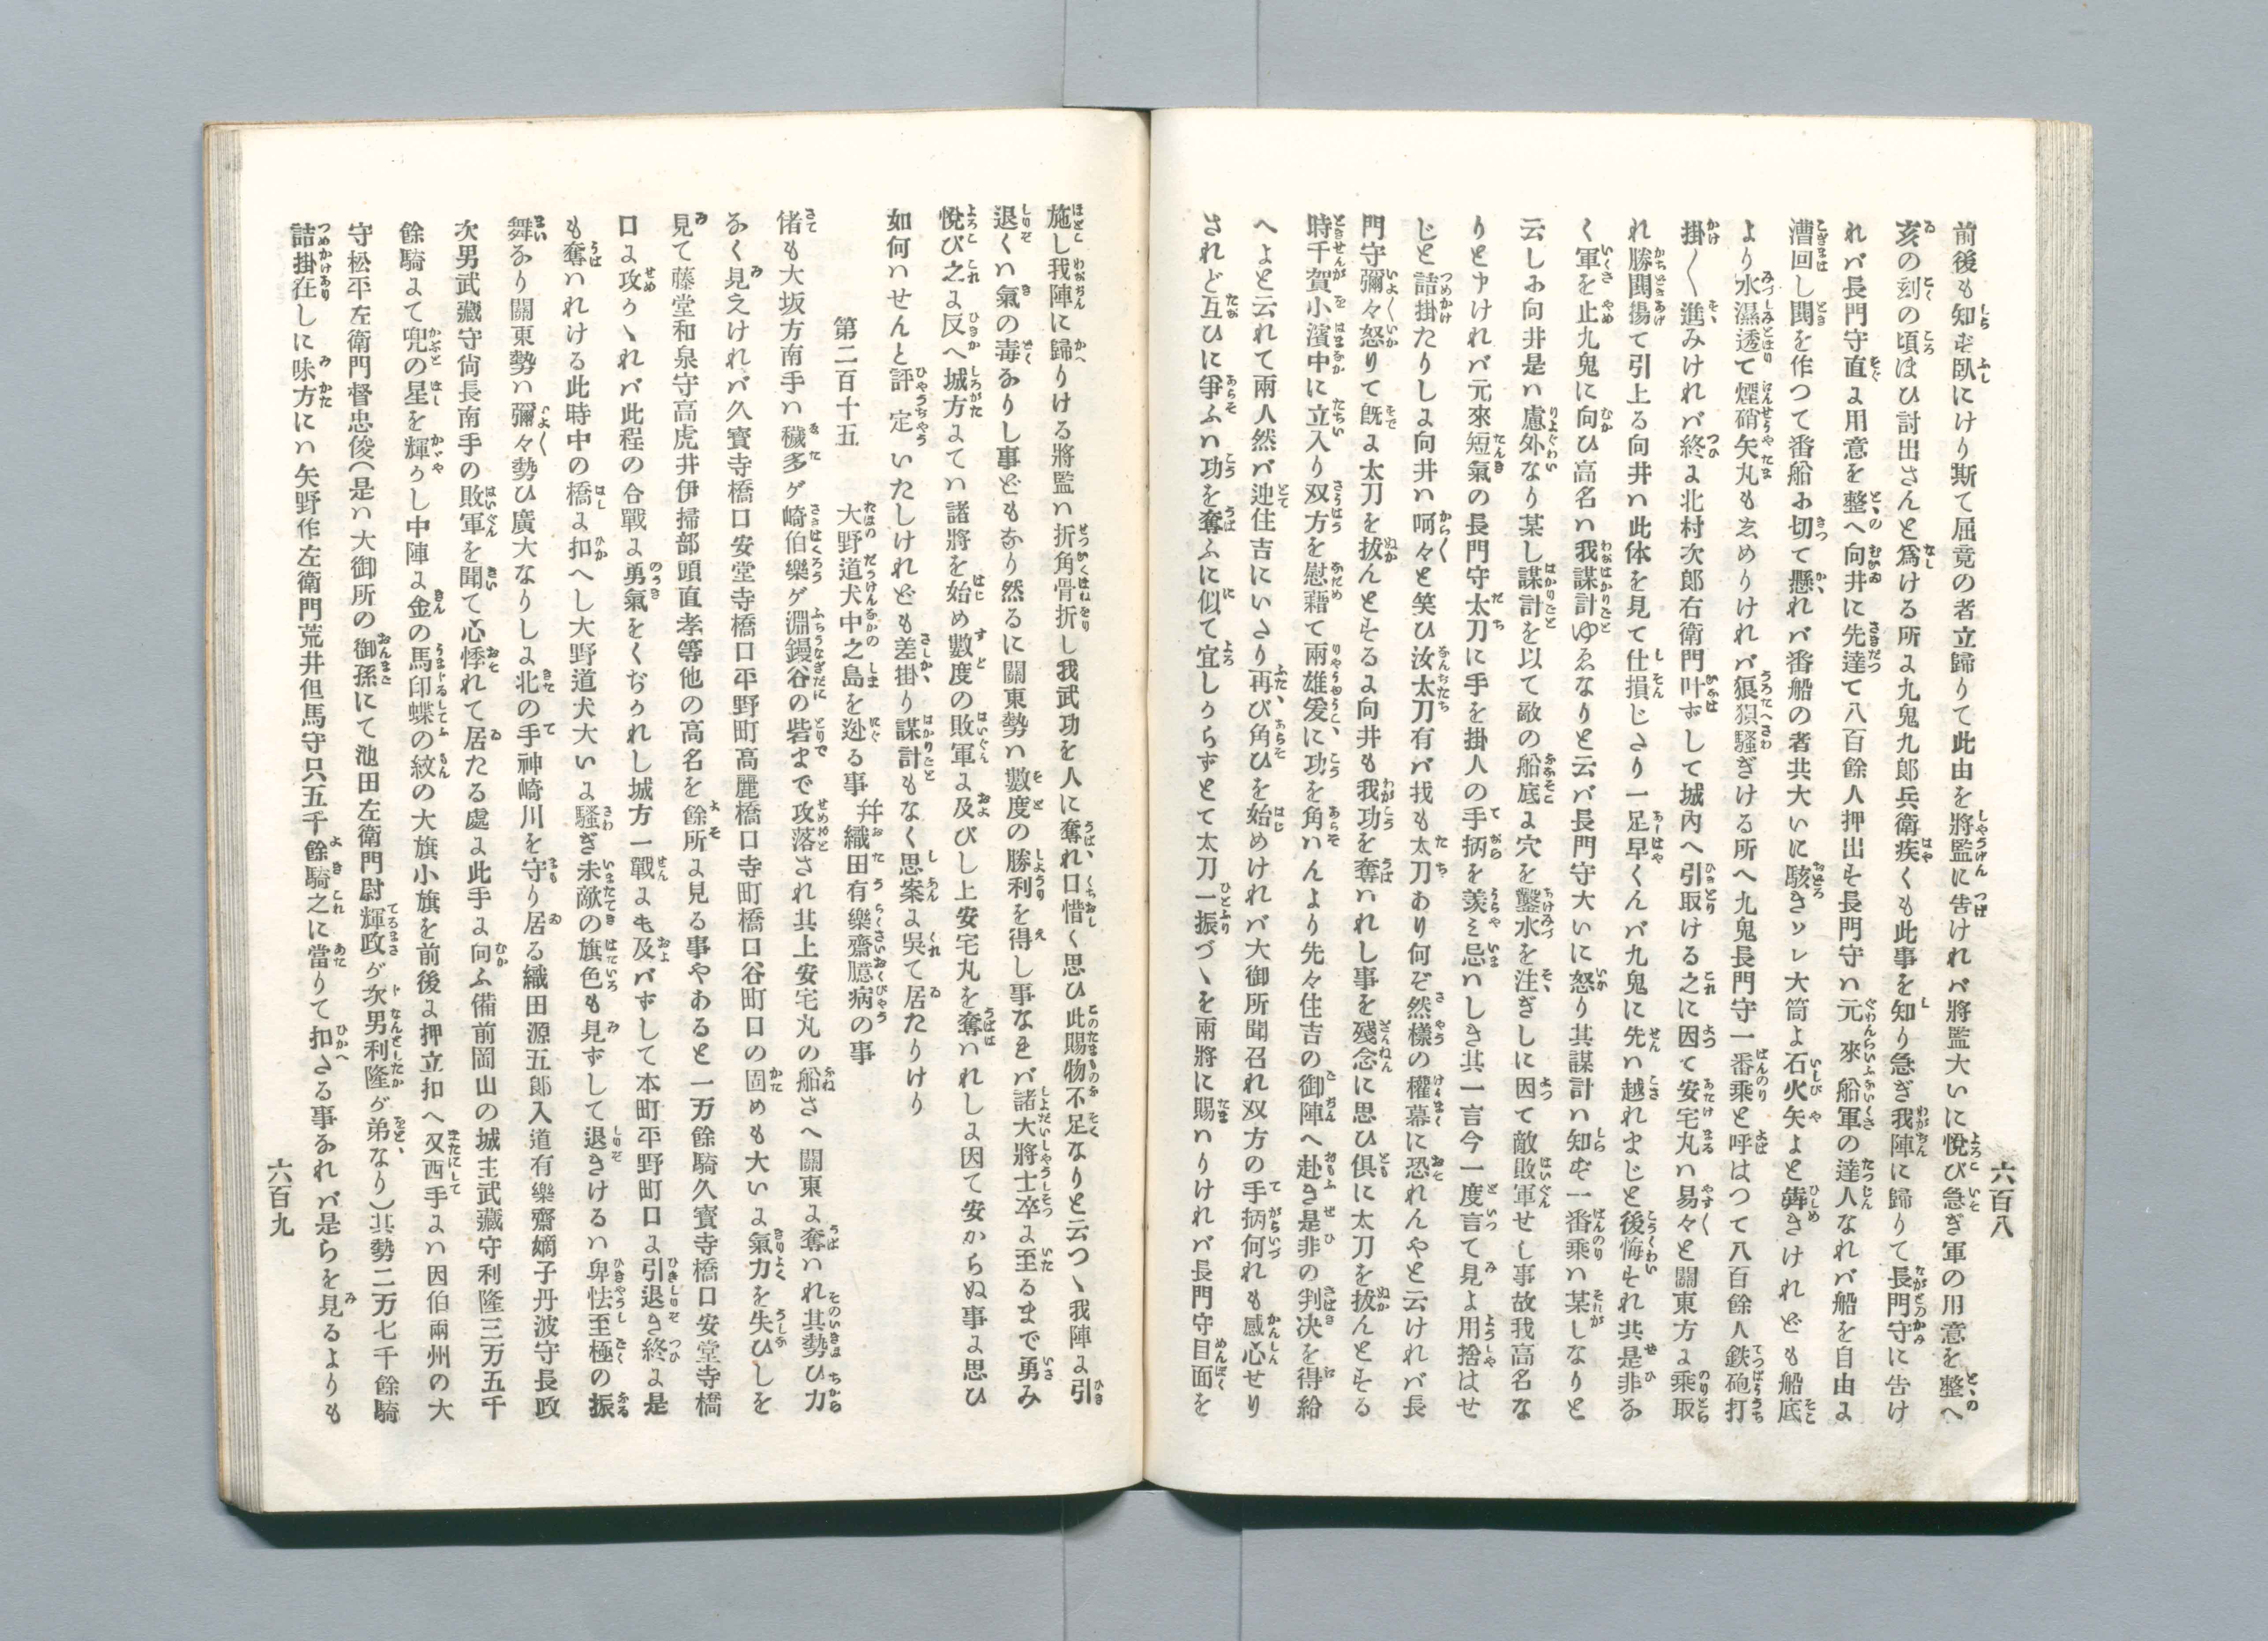 六百八
前後も知らず臥にけり斯て屈竟の者立歸りて此由を將監に告けれバ將監大いに悅び急ぎ軍の用意を整へ
亥の刻の頃ほひ討出さんと爲ける所に九鬼九郎兵衛疾くも此事を知り急ぎ我陣に歸りて長門守に告け
れバ長門守直に用意を整へ向井に先達て八百餘人押出す長門守ハ元來船軍の達人なれバ船を自由に
漕回し鬨を作つて番船お切て懸れバ番船の者共大いに駭きソレ大筒よ石火矢よと犇きけれども船底
より水濕透て煙硝矢丸もゑめりけれバ狼狽騷ぎける所へ九鬼長門守一番乘と呼はつて八百餘人鉄砲打
掛〱進みけれバ終に北村次郎右衛門叶ずして城内へ引取ける之に因て安宅丸ハ易々と關東方に乘取
れ勝鬨揚て引上る向井ハ此体を見て仕損じさり一足早くんバ九鬼に先ハ越れまじと後悔すれ共是非な
く軍を止九鬼に向ひ高名ハ我謀計ゆゑなりと云バ長門守大いに怒り其謀計ハ知らず一番乘ハ某しなりと
云しお向井是ハ慮外なり某し謀計を以て敵の船底に穴を鑿水を注ぎしに因て敵敗軍せし事故我高名な
りと申けれバ元來短氣の長門守太刀に手を掛人の手柄を羨ミ忌ハしき其一言今一度言て見よ用捨はせ
じと詰掛たりしに向井ハ呵々と笑ひ汝太刀有バ我も太刀あり何ぞ然樣の權幕に恐れんやと云けれバ長
門守彌々怒りて既に太刀を拔んとするに向井も我功を奪ハれし事を殘念に思ひ俱に太刀を拔んとする
時千賀小濱中に立入り双方を慰藉て兩雄爰に功を角ハんより先々住吉の御陣へ赴き是非の判决を得給
へよと云れて兩人然バ迚住吉にいさり再び角ひを始めけれバ大御所聞召れ双方の手柄何れも感心せり
されど互ひに爭ふハ功を奪ふに似て宜しからずとて太刀一振づゝを兩將に賜ハりけれバ長門守目面を
施し我陣に歸りける將監ハ折角骨折し我武功を人に奪れ口惜く思ひ此賜物不足なりと云つゝ我陣に引
退くハ氣の毒なりし事どもなり然るに關東勢ハ數度の勝利を得し事なれバ諸大將士卒に至るまで勇み
悅び之に反へ城方にてハ諸將を始め數度の敗軍に及びし上安宅丸を奪ハれしに因て安からぬ事に思ひ
如何ハせんと評定いたしけれども差掛り謀計もなく思案に吳て居たりけり
第二百十五　大野道犬中之島を迯る事幷織田有樂齋臆病の事
偖も大坂方南手ハ穢多ヶ崎伯樂ヶ淵鏝谷の砦まで攻落され其上安宅丸の船さへ關東に奪ハれ其勢ひ力
なく見えけれバ久寳寺橋口安堂寺橋口平野町高麗橋口寺町橋口谷町口の固めも大いに氣力を失ひしを
見て藤堂和泉守高虎井伊掃部頭直孝等他の高名を餘所に見る事やあると一万餘騎久寳寺橋口安堂寺橋
口に攻かゝれバ此程の合戰に勇氣をくぢかれし城方一戰にも及バずして本町平野町口に引退き終に是
も奪ハれける此時中の橋に扣へし大野道犬大いに騷ぎ未敵の旗色も見ずして退きけるハ卑怯至極の振
舞なり關東勢ハ彌々勢ひ廣大なりしに北の手神崎川を守り居る織田源五郎入道有樂齋嫡子丹波守長政
次男武藏守尙長南手の敗軍を聞て心悸れて居たる處に此手に向ふ備前岡山の城主武藏守利隆三万五千
餘騎にて兜の星を輝かし中陣に金の馬印蝶の紋の大旗小旗を前後に押立扣へ又西手にハ因伯兩州の大
守松平左衛門督忠俊（是ハ大御所の御孫にて池田左衛門尉輝政が次男利隆が弟なり）其勢二万七千餘騎
詰掛在しに味方にハ矢野作左衛門荒井但馬守只五千餘騎之に當りて扣さる事なれバ是らを見るよりも
六百九